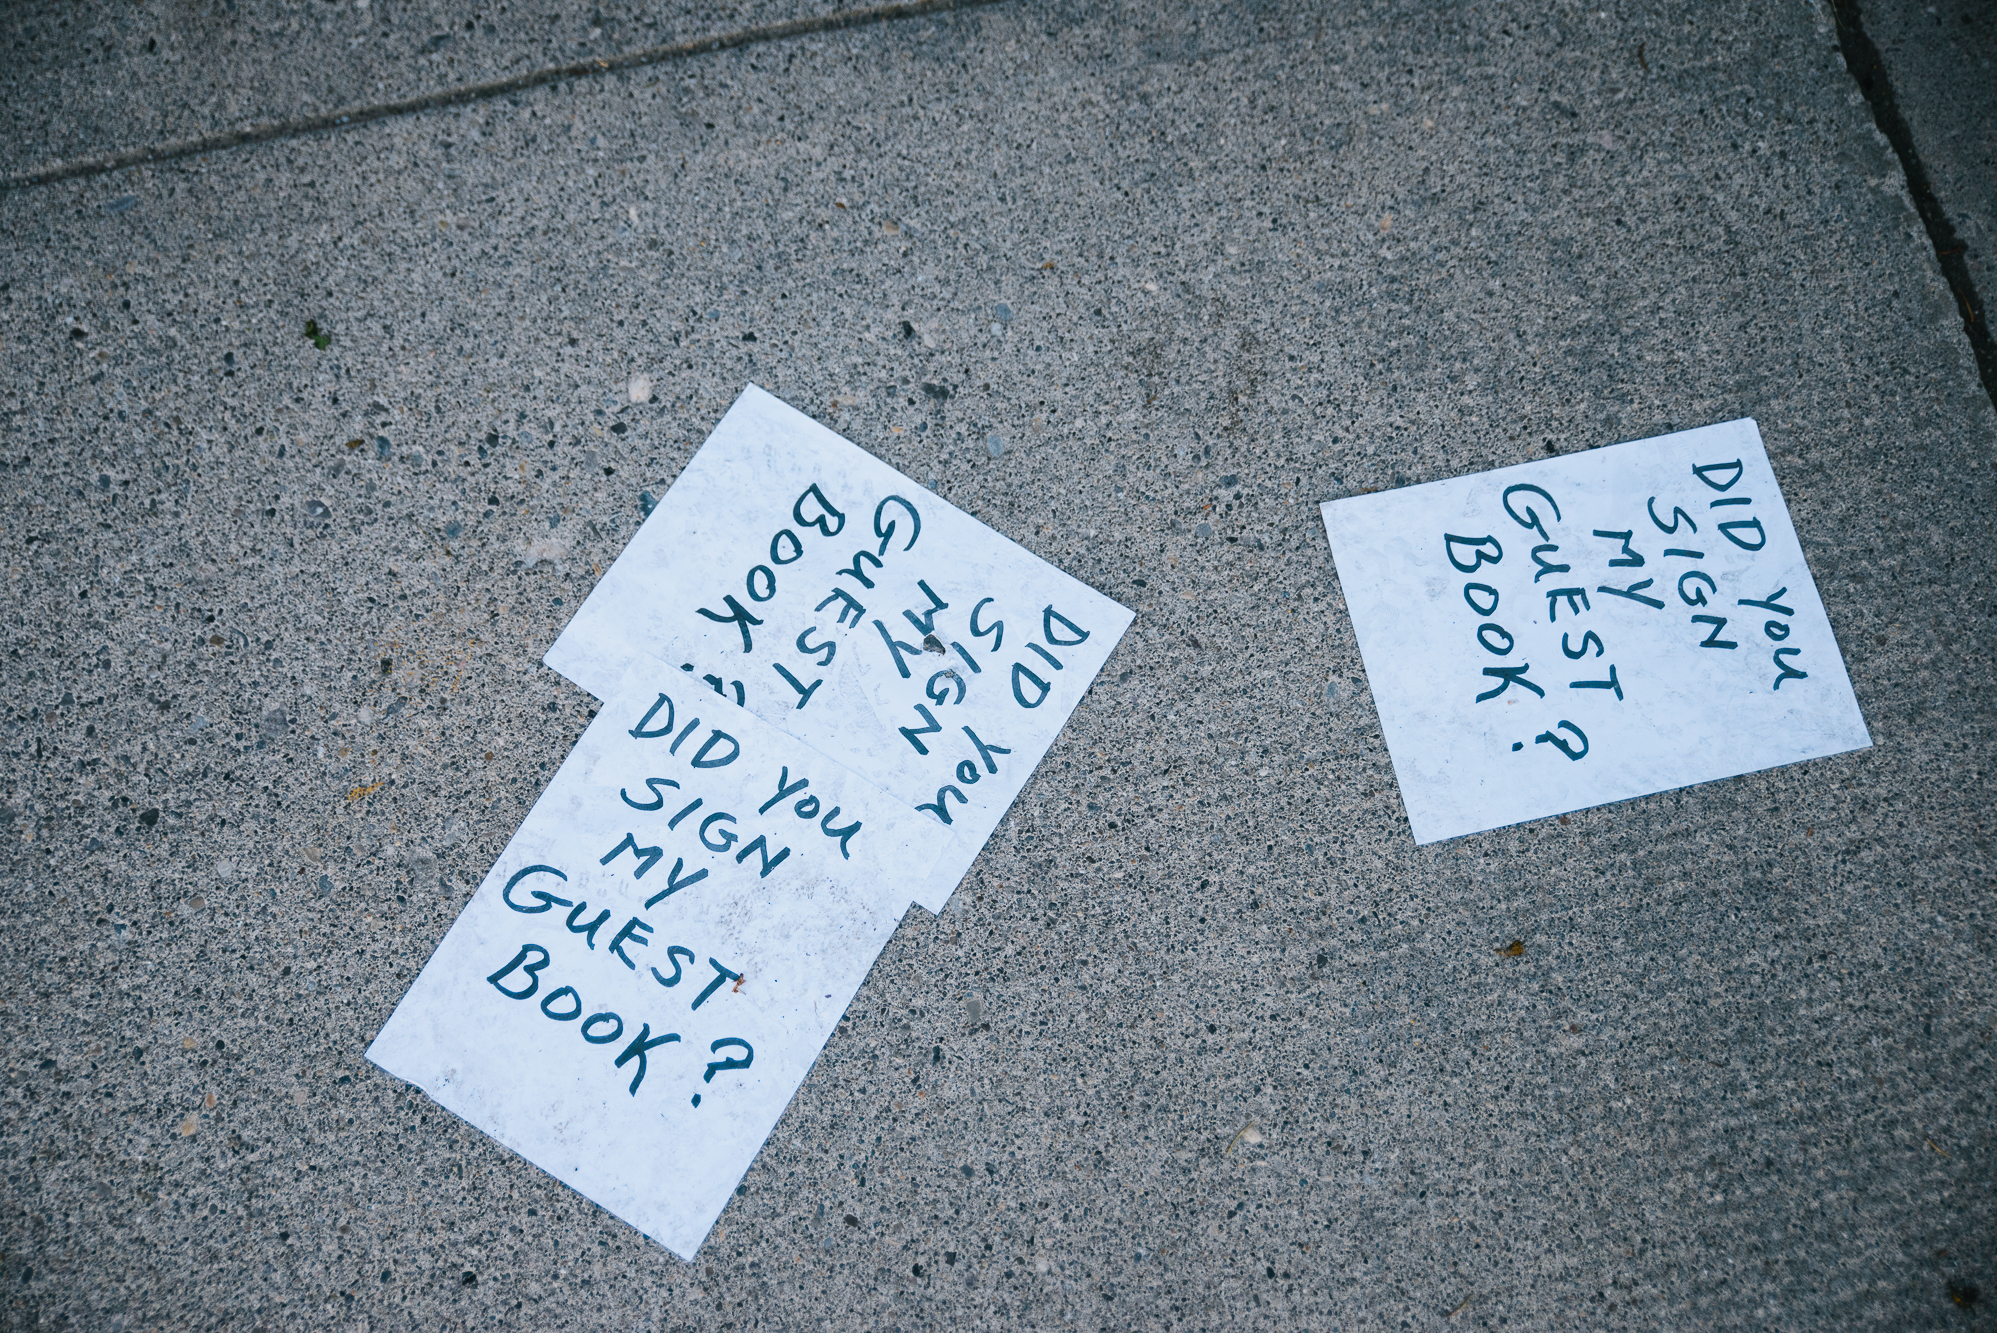 DID YOU
SIGN
MY
GUEST
BOOK?
DID YOU
SIGN
MY
GUEST
BOOK?
DID YOU
SIGN
MY
GUEST
BOOK?